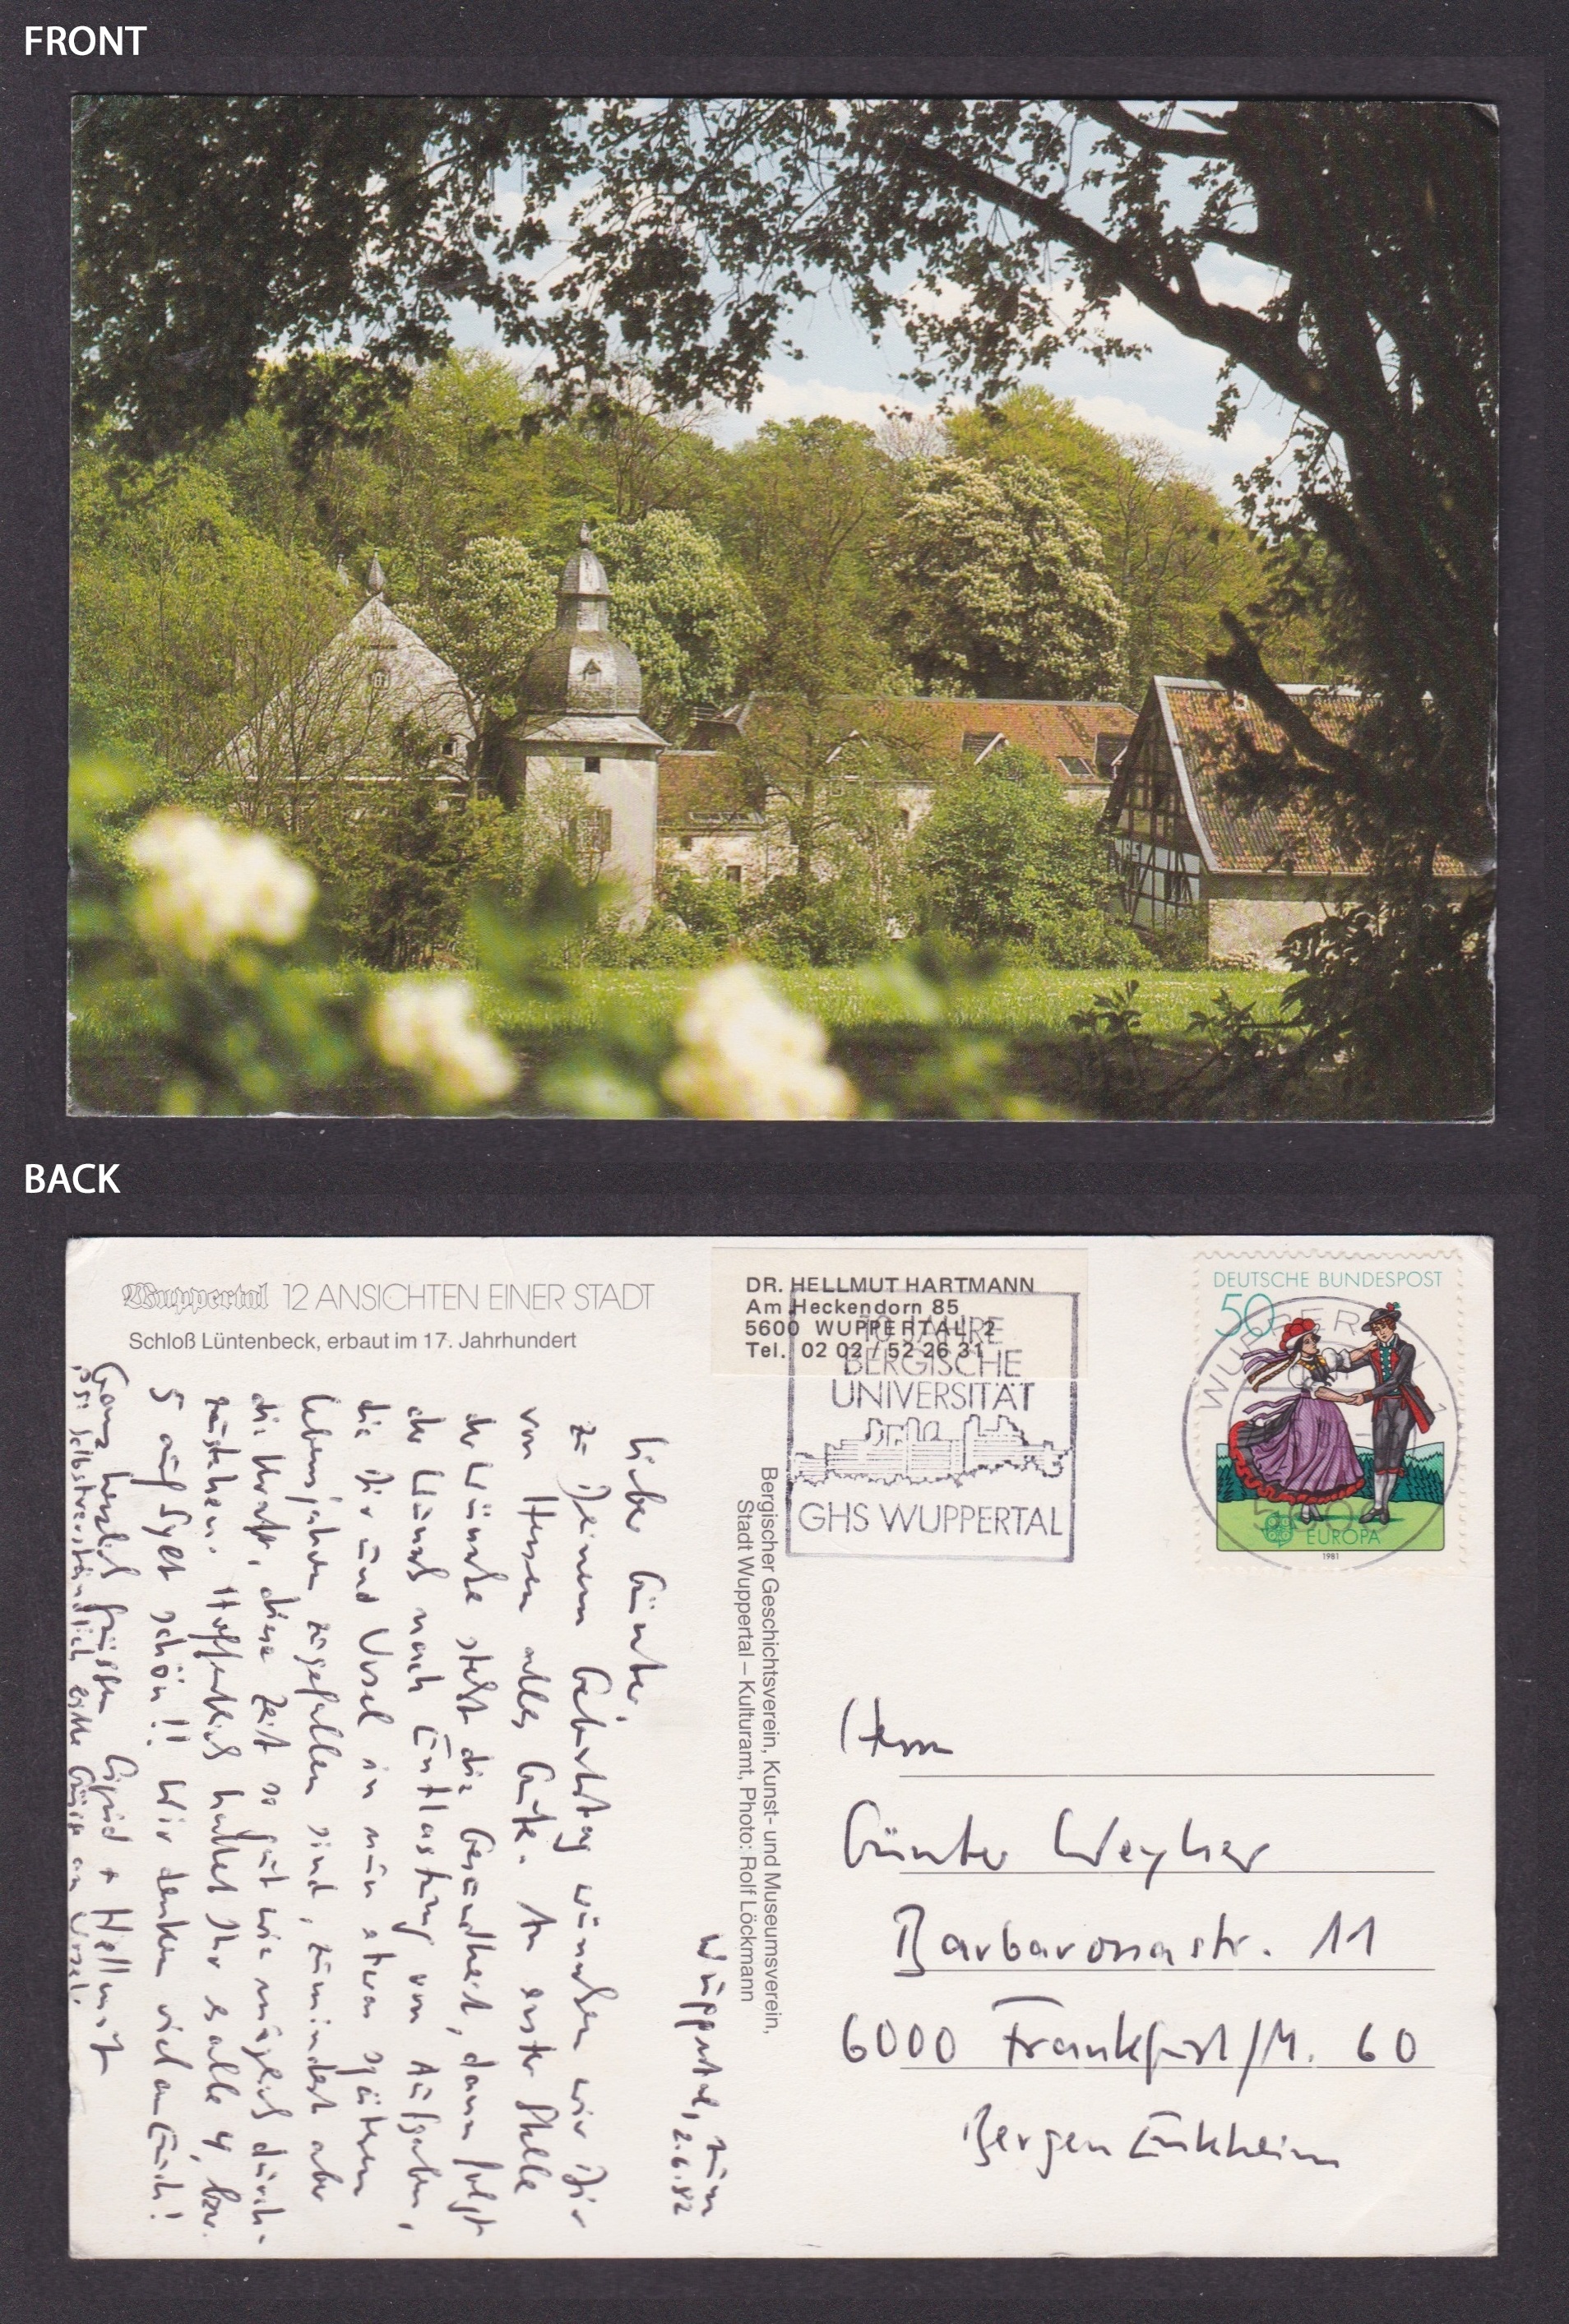 FRONT
BACK
Wuppertal 12 ANSICHTEN EINER STADT
Schloß Lüntenbeck, erbaut im 17. Jahrhundert
DR. HELLMUT HARTMANN
Am Heckendorn 85
5600 WUPPERTAL 2
Tel. 02 02 / 52 26 31
10 JAHRE
BERGISCHE
UNIVERSITÄT
GHS WUPPERTAL
DEUTSCHE BUNDESPOST
50
EUROPA
1981
WUPPERTAL 1
Bergischer Geschichtsverein, Kunst- und Museumsverein,
Stadt Wuppertal – Kulturamt, Photo: Rolf Löckmann
Wuppertal, zum
2.6.82
Lieber Günter,
zu Deinem Geburtstag wünschen wir Dir
von Herzen alles Gute. An erster Stelle
der Wünsche steht die Gesundheit, dann folgt
der Wunsch nach Entlastung von Aufgaben,
die Dir und Ursel in nun etwas späteren
Lebensjahren zugefallen sind, zumindest aber
die Kraft, diese Zeit so gut wie möglich durch-
zustehen. Hoffentlich hattet Ihr es alle 4, bzw.
5 auf Sylt schön!! Wir denken viel an Euch!
Ganz herzlich grüßen Sigrid + Hellmut
PS: Selbstverständlich Grüße an Ursel.
Herrn
Günter Weyher
Barbarossastr. 11
6000 Frankfurt/M. 60
Bergen Enkheim